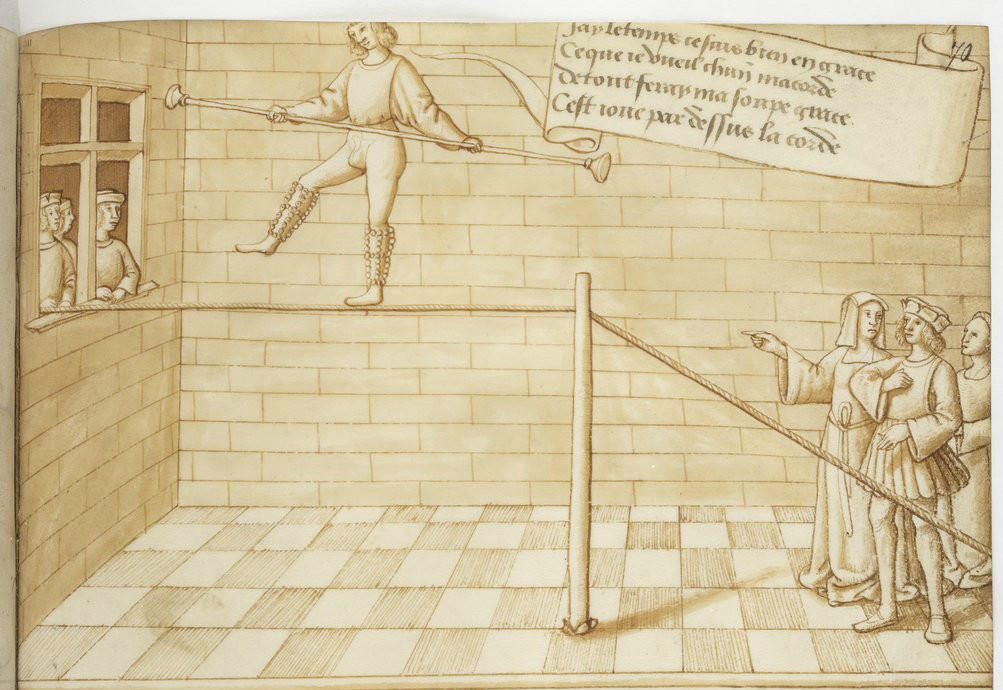 Jay le temps ie suis bien en grace
Ce que ie vueil chun macorde
de tout feray ma soupe grace
Cest ioue par dessus la corde
70